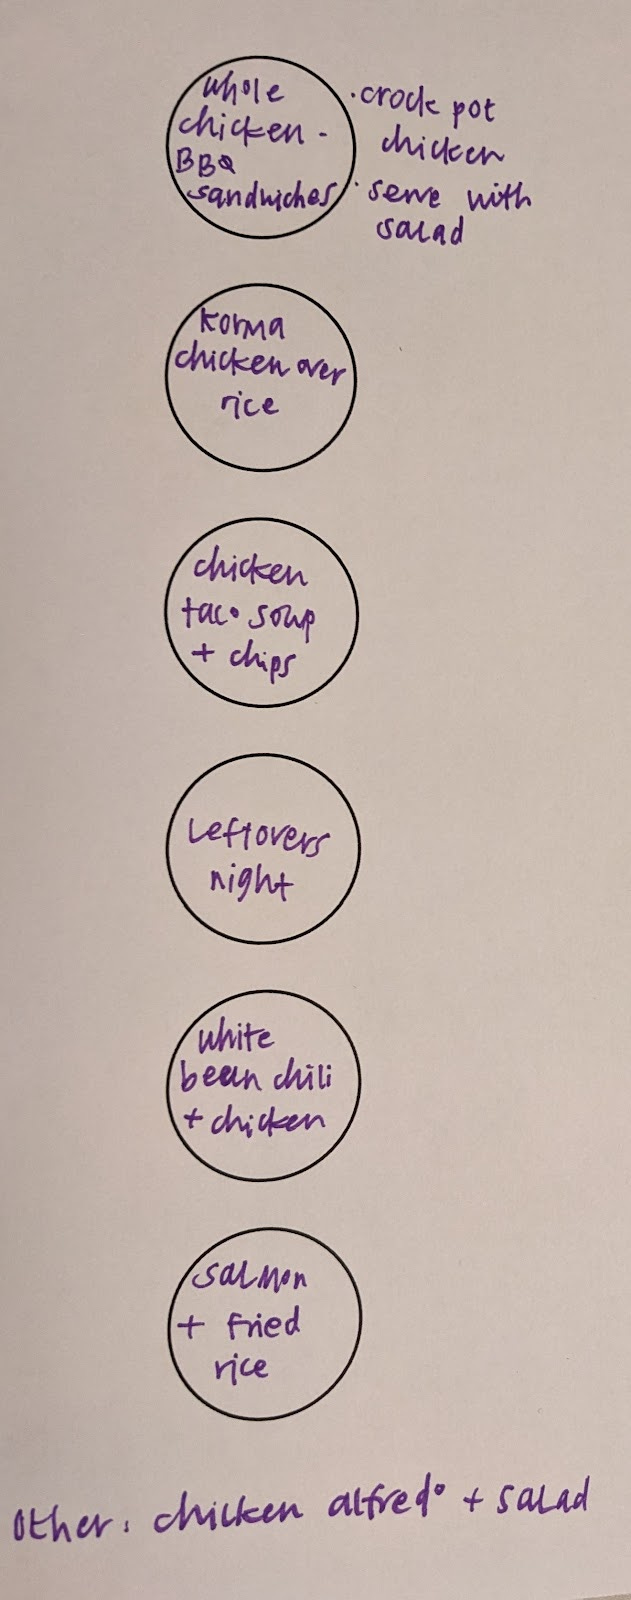 whole
chicken -
BBQ
sandwiches
· crock pot
chicken
· serve with
salad
korma
chicken over
rice
chicken
taco soup
+ chips
Leftovers
night
white
bean chili
+ chicken
salmon
+ fried
rice
other: chicken alfredo + salad